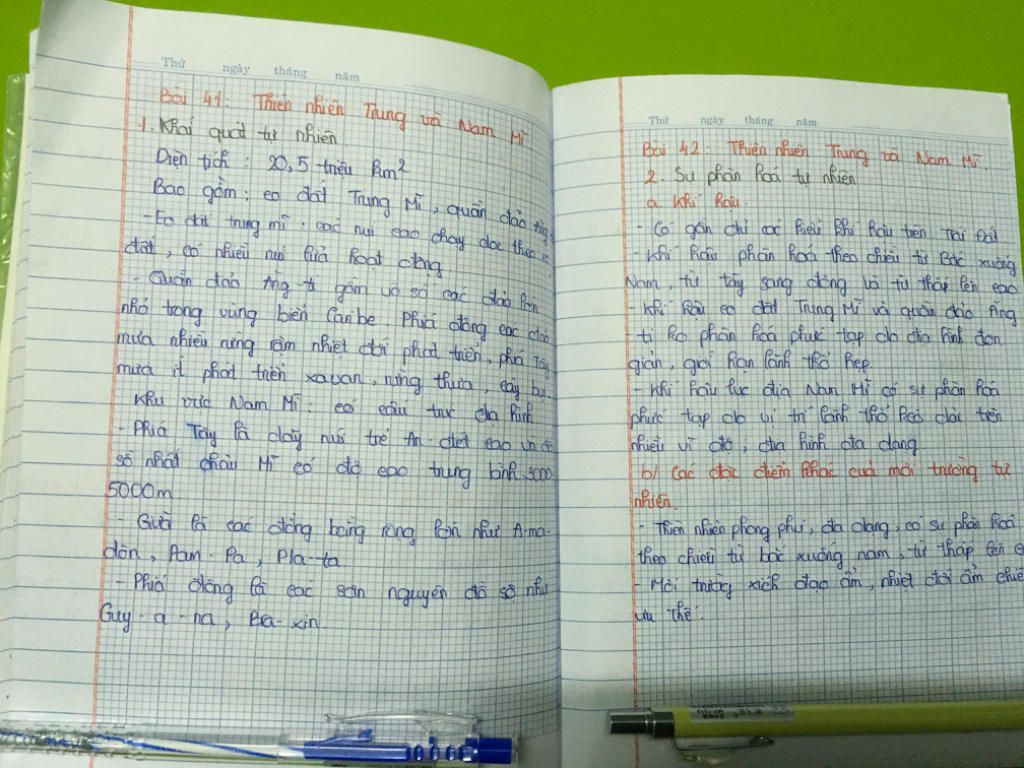 Thứ ngày tháng năm
Bài 41: Thiên nhiên Trung và Nam Mĩ
1. Khái quát tự nhiên
Diện tích : 20,5 triệu km²
Bao gồm : eo đất Trung Mĩ, quần đảo Ăng
- Eo đất trung mĩ : các núi cao chạy dọc theo
đất, có nhiều núi lửa hoạt động
- Quần đảo Ăng ti gồm vô số các đảo lớn
nhỏ trong vùng biển Caribe. Phía đông các đảo
mưa nhiều rừng rậm nhiệt đới phát triển, phía Tây
mưa ít phát triển xavan, rừng thưa, cây bụi
Khu vực Nam Mĩ : có cấu trúc địa hình
- Phía Tây là dãy núi trẻ An-đét cao và đồ
sộ nhất châu Mĩ có độ cao trung bình 3000
5000m
- Giữa là các đồng bằng rộng lớn như A-ma-
dôn, Pam-Pa, Pla-ta
- Phía đông là các sơn nguyên đồ sộ như
Guy-a-na, Bra-xin.
Thứ ngày tháng năm
Bài 42 : Thiên nhiên Trung và Nam Mĩ.
2. Sự phân hoá tự nhiên
a. Khí hậu
- Có gần đủ các kiểu khí hậu trên Trái Đất
- Khí hậu phân hoá theo chiều từ Bắc xuống
Nam, từ tây sang đông và từ thấp lên cao
- Khí hậu eo đất Trung Mĩ và quần đảo Ăng
ti ko phân hoá phức tạp do địa hình đơn
giản, giới hạn lãnh thổ hẹp.
- Khí hậu lục địa Nam Mĩ có sự phân hoá
phức tạp do vị trí lãnh thổ kéo dài trên
nhiều vĩ độ, địa hình đa dạng
b/ Các đặc điểm khác của môi trường tự
nhiên.
- Thiên nhiên phong phú, đa dạng, có sự phân hoá
theo chiều từ bắc xuống nam, từ thấp lên
- Môi trường xích đạo ẩm, nhiệt đới ẩm chiếm
ưu thế.